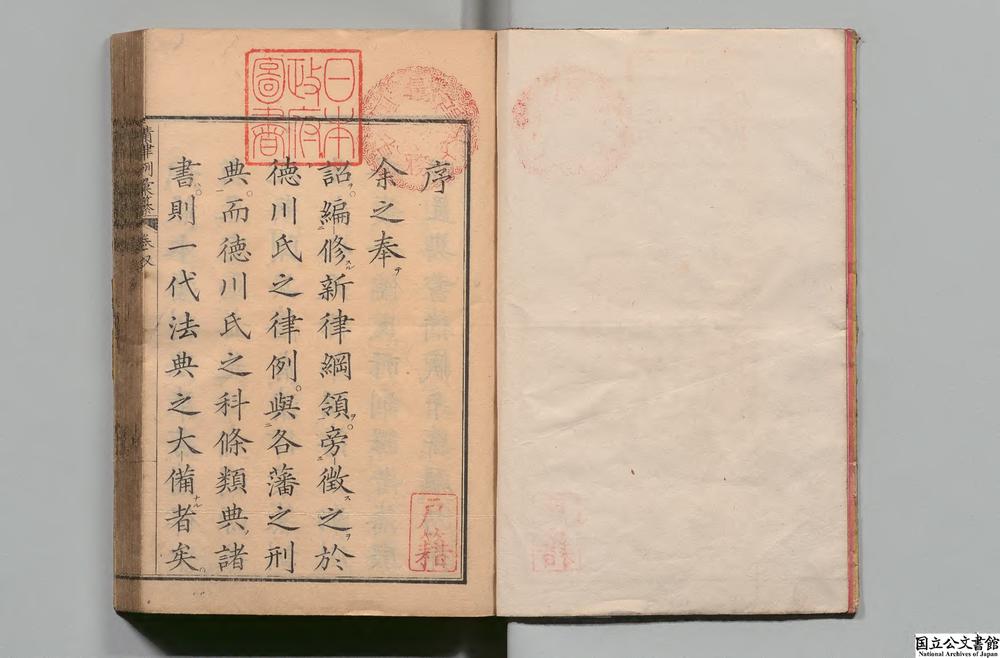 序
余之奉
詔編修新律綱領。旁徵之於
德川氏之律例。與各藩之刑
典。而德川氏之科條類典諸
書則一代法典之大備者矣
日本
政府
圖書
戸籍
国立公文書館
National Archives of Japan